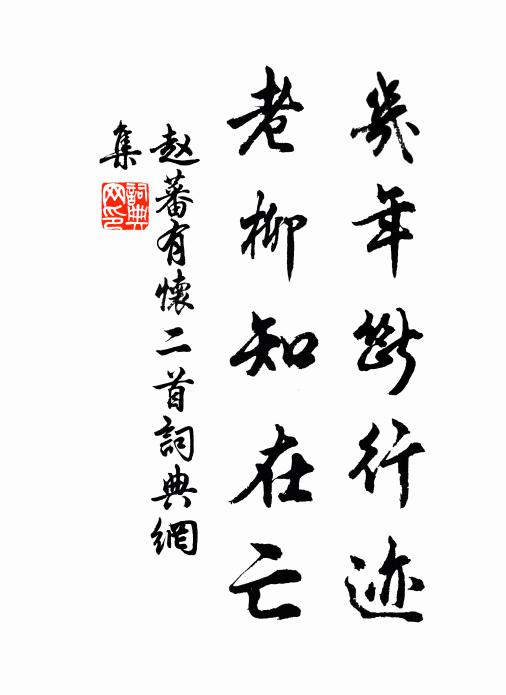 幾年斷行迹
老柳知在亡
赵蕃有懷二首詞典網
集
詞典
网印